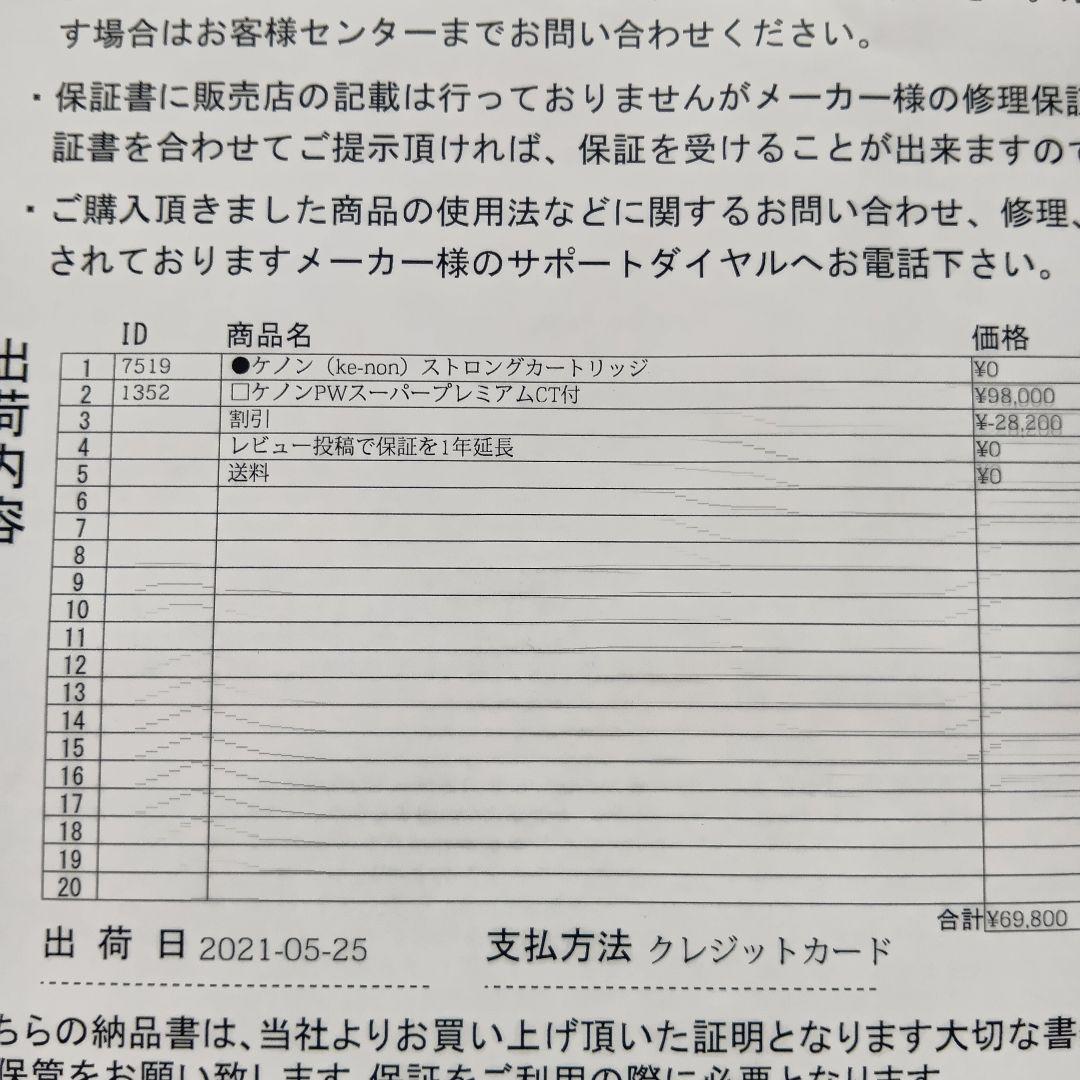 す場合はお客様センターまでお問い合わせください。
・保証書に販売店の記載は行っておりませんがメーカー様の修理保証
証書を合わせてご提示頂ければ、保証を受けることが出来ますので
・ご購入頂きました商品の使用法などに関するお問い合わせ、修理、
されておりますメーカー様のサポートダイヤルへお電話下さい。
出荷内容
ID 商品名 価格
1 7519 ●ケノン（ke-non）ストロングカートリッジ ¥0
2 1352 □ケノンPWスーパープレミアムCT付 ¥98,000
3 割引 ¥-28,200
4 レビュー投稿で保証を1年延長 ¥0
5 送料 ¥0
6
7
8
9
10
11
12
13
14
15
16
17
18
19
20
合計 ¥69,800
出荷日 2021-05-25 支払方法 クレジットカード
ちらの納品書は、当社よりお買い上げ頂いた証明となります大切な書
保管をお願い致します。保証をご利用の際に必要となります